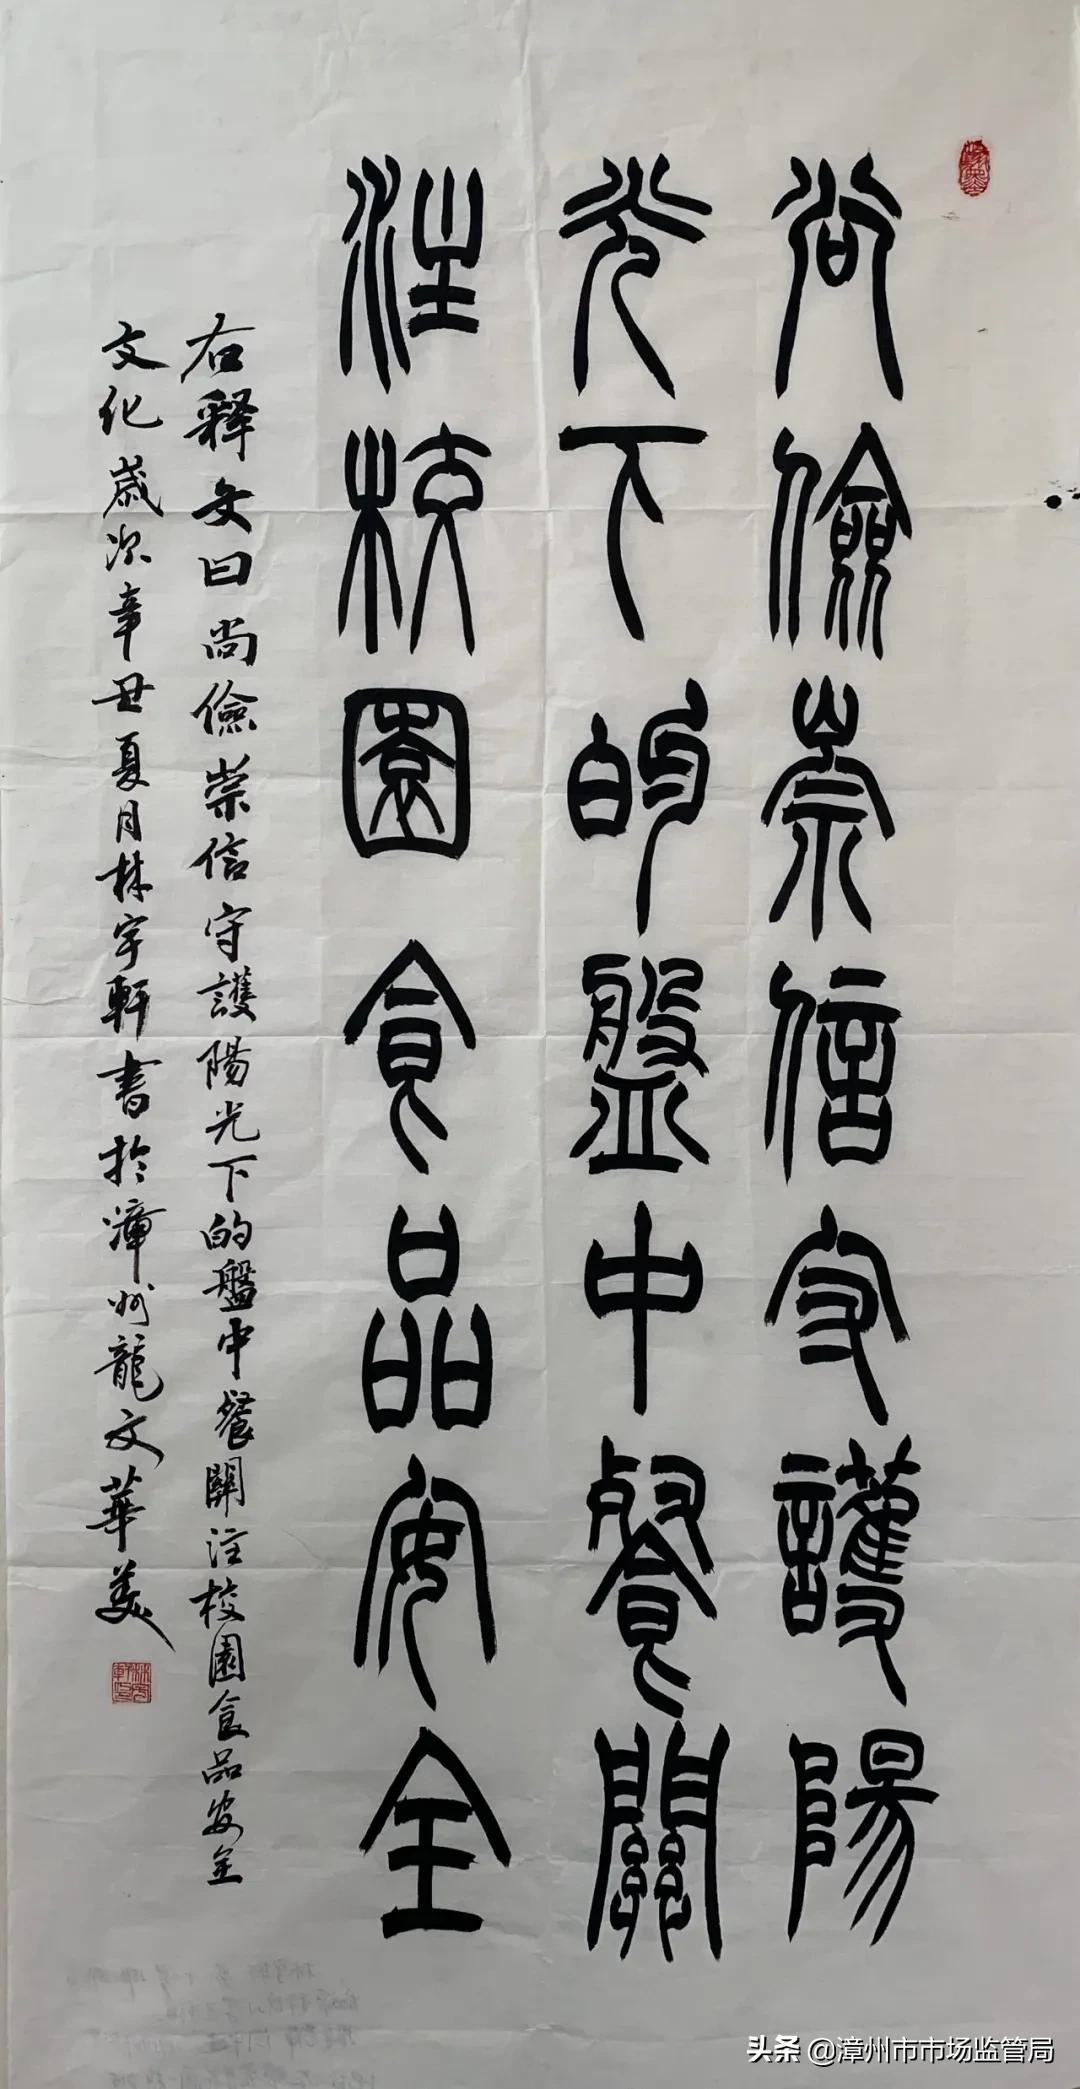 尚儉崇信守護陽
光下的盤中餐關
注校園食品安全
右释文曰尚儉崇信守護陽光下的盤中餐關注校園食品安全
文化歲次辛丑夏月林宇軒書於漳州龍文華美
头条 @漳州市市场监管局